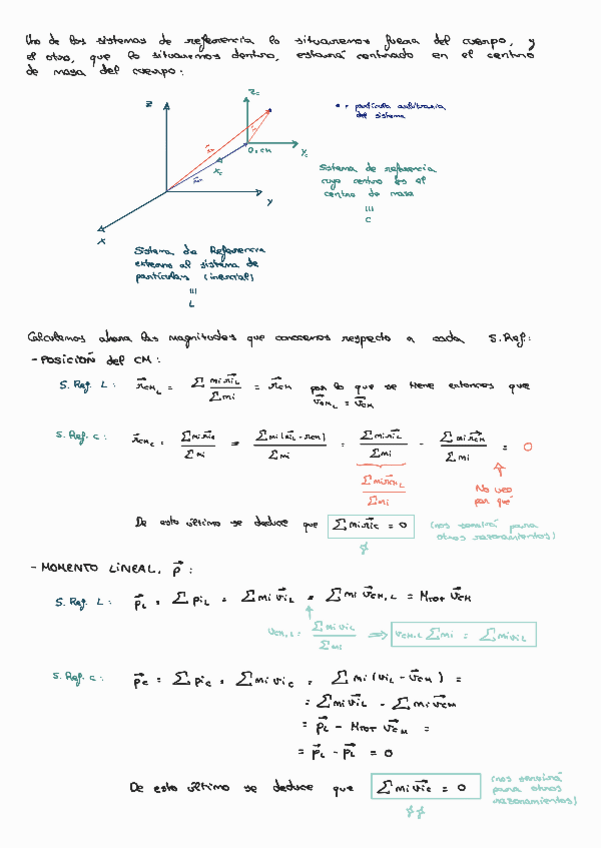 Uno de los sistemas de referencia lo situaremos fuera del cuerpo, y
el otro, que lo situaremos dentro, estará centrado en el centro
de masa del cuerpo:
Z
Zc
• ≡ partícula arbitraria
del sistema
O ≡ CM
Yc
Xc
Y
X
Sistema de referencia
cuyo centro es el
centro de masa
≡
C
Sistema de Referencia
externo al sistema de
partículas (inercial)
≡
L
Calculemos ahora las magnitudes que conocemos respecto a cada S.Ref:
- POSICIÓN del CM:
S. Ref. L: r⃗CM_L = ∑ mi r⃗iL / ∑mi = r⃗CM por lo que se tiene entonces que
v⃗CM_L = v⃗CM
S. Ref. C: r⃗CM_C = ∑mi r⃗iC / ∑mi = ∑mi(r⃗iL - r⃗CM) / ∑mi = ∑mi r⃗iL / ∑mi - ∑mi r⃗CM / ∑mi = 0
∑mi r⃗CM_L / ∑mi
No veo
por qué
De esto último se deduce que ∑mi r⃗iC = 0 (nos servirá para
otros razonamientos)
- MOMENTO LINEAL, p⃗:
S. Ref. L: p⃗L = ∑ p⃗iL = ∑mi v⃗iL = ∑mi v⃗CM,L = MTOT v⃗CM
vCM,L = ∑mi viL / ∑mi ⟹ vCM,L ∑mi = ∑mi viL
S. Ref. C: p⃗C = ∑ p⃗iC = ∑mi v⃗iC = ∑mi (viL - v⃗CM) =
= ∑mi v⃗iL - ∑mi v⃗CM
= p⃗L - MTOT v⃗CM =
= p⃗L - p⃗L = 0
De esto último se deduce que ∑mi v⃗iC = 0 (nos servirá
para otros
razonamientos)